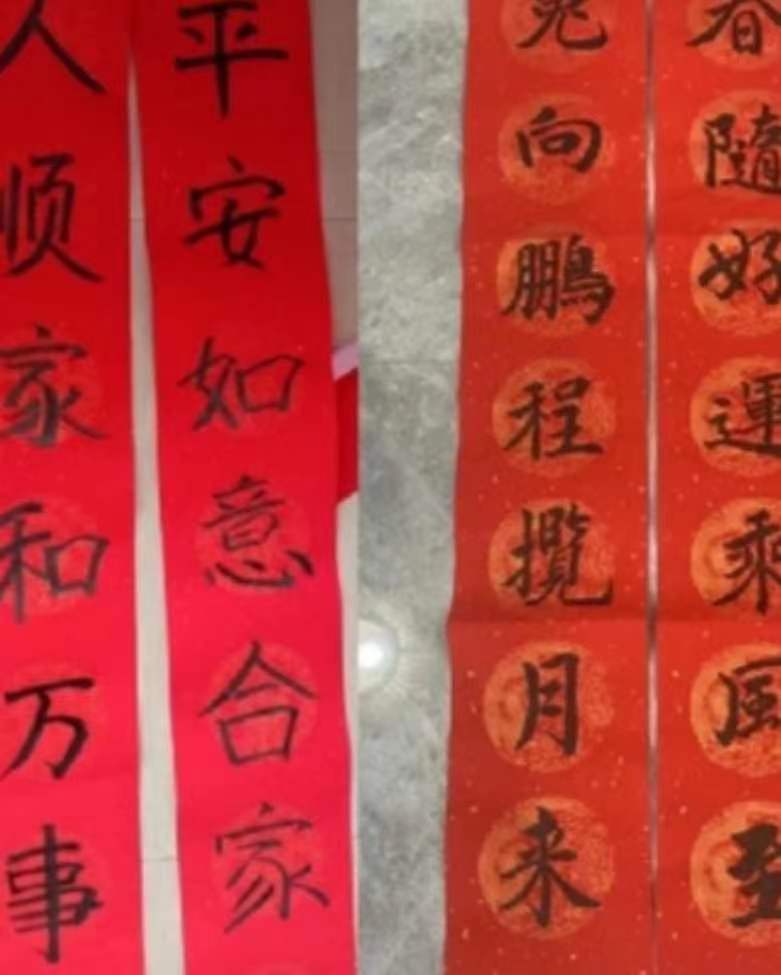 春隨好運乘風至
兔向鵬程攬月来
平安如意合家
人顺家和万事